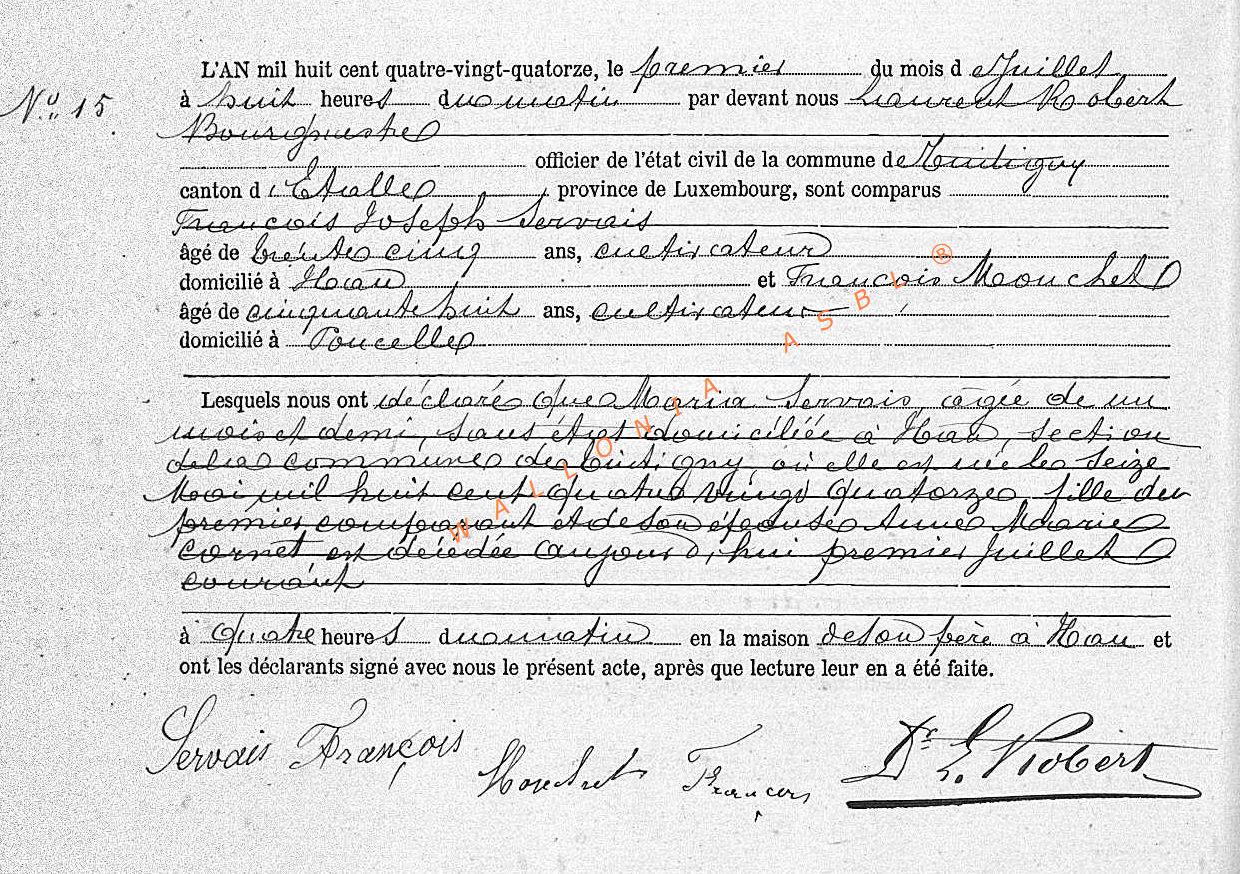 L'AN mil huit cent quatre-vingt-quatorze, le premier du mois d e Juillet
N° 15
à huit heures du matin par devant nous Laurent Robert
Bourgmestre
officier de l'état civil de la commune de Tintigny
canton d' Etalle, province de Luxembourg, sont comparus
François Joseph Servais
âgé de trente cinq ans, cultivateur
domicilié à Han et François Mouchet
âgé de cinquante huit ans, cultivateur
domicilié à Poncelle
Lesquels nous ont déclaré que Maria Servais, agée de un
mois et demi, sans état domiciliée à Han, section
de la commune de Tintigny, où elle est née le seize
Mai mil huit cent quatre vingt quatorze, fille du
premier comparant et de son épouse Anne Marie
Cornet est décédée aujourd'hui premier Juillet
courant
à quatre heures du matin en la maison de son père à Han et
ont les déclarants signé avec nous le présent acte, après que lecture leur en a été faite.
Servais François
Mouchet François
Dr L. Robert
WALLONIA ASBL ®